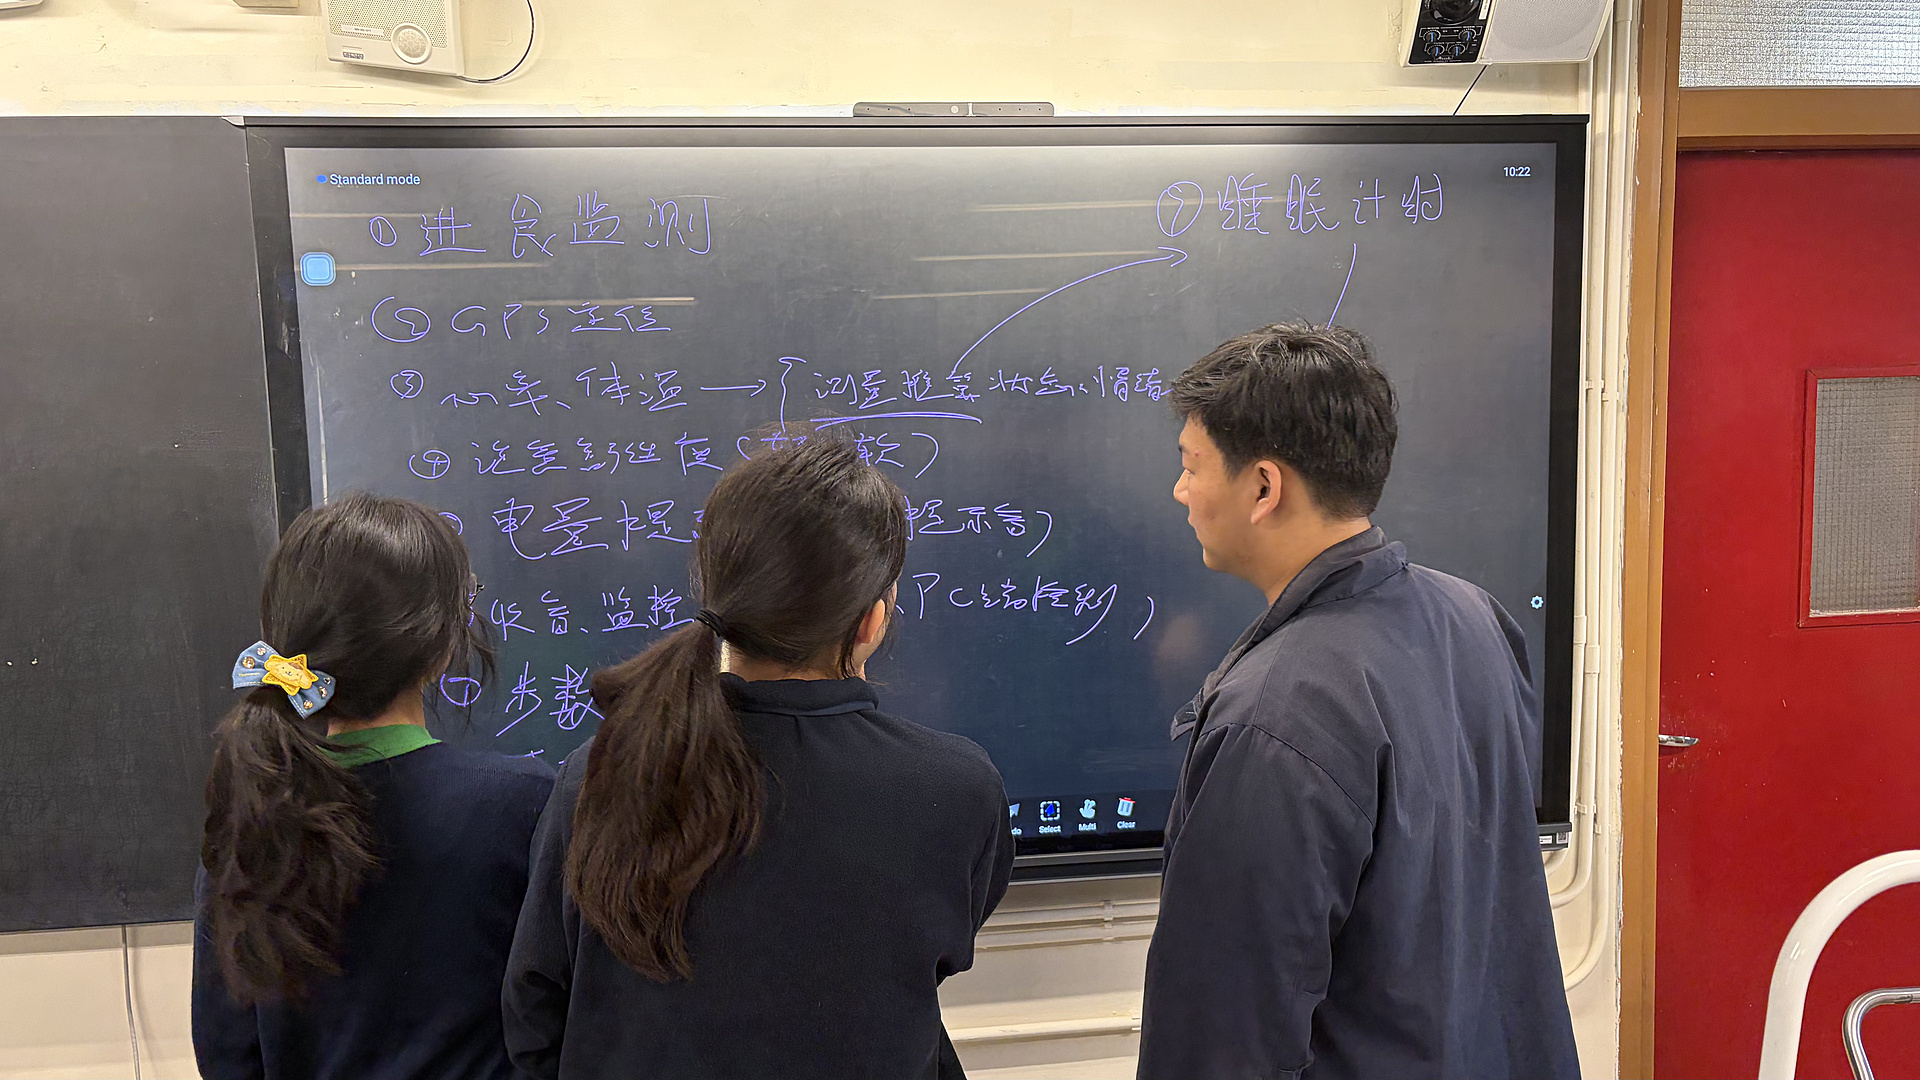 Standard mode
10:22
① 进食监测
⑦ 睡眠计时
② GPS定位
③ 心率、体温 → { 测量推算 状态、情绪
④ 度 ( 软 )
电量提 提示音 )
收音、监控 、PC端控制 )
⑦ 步数
Select
Multi
Clear